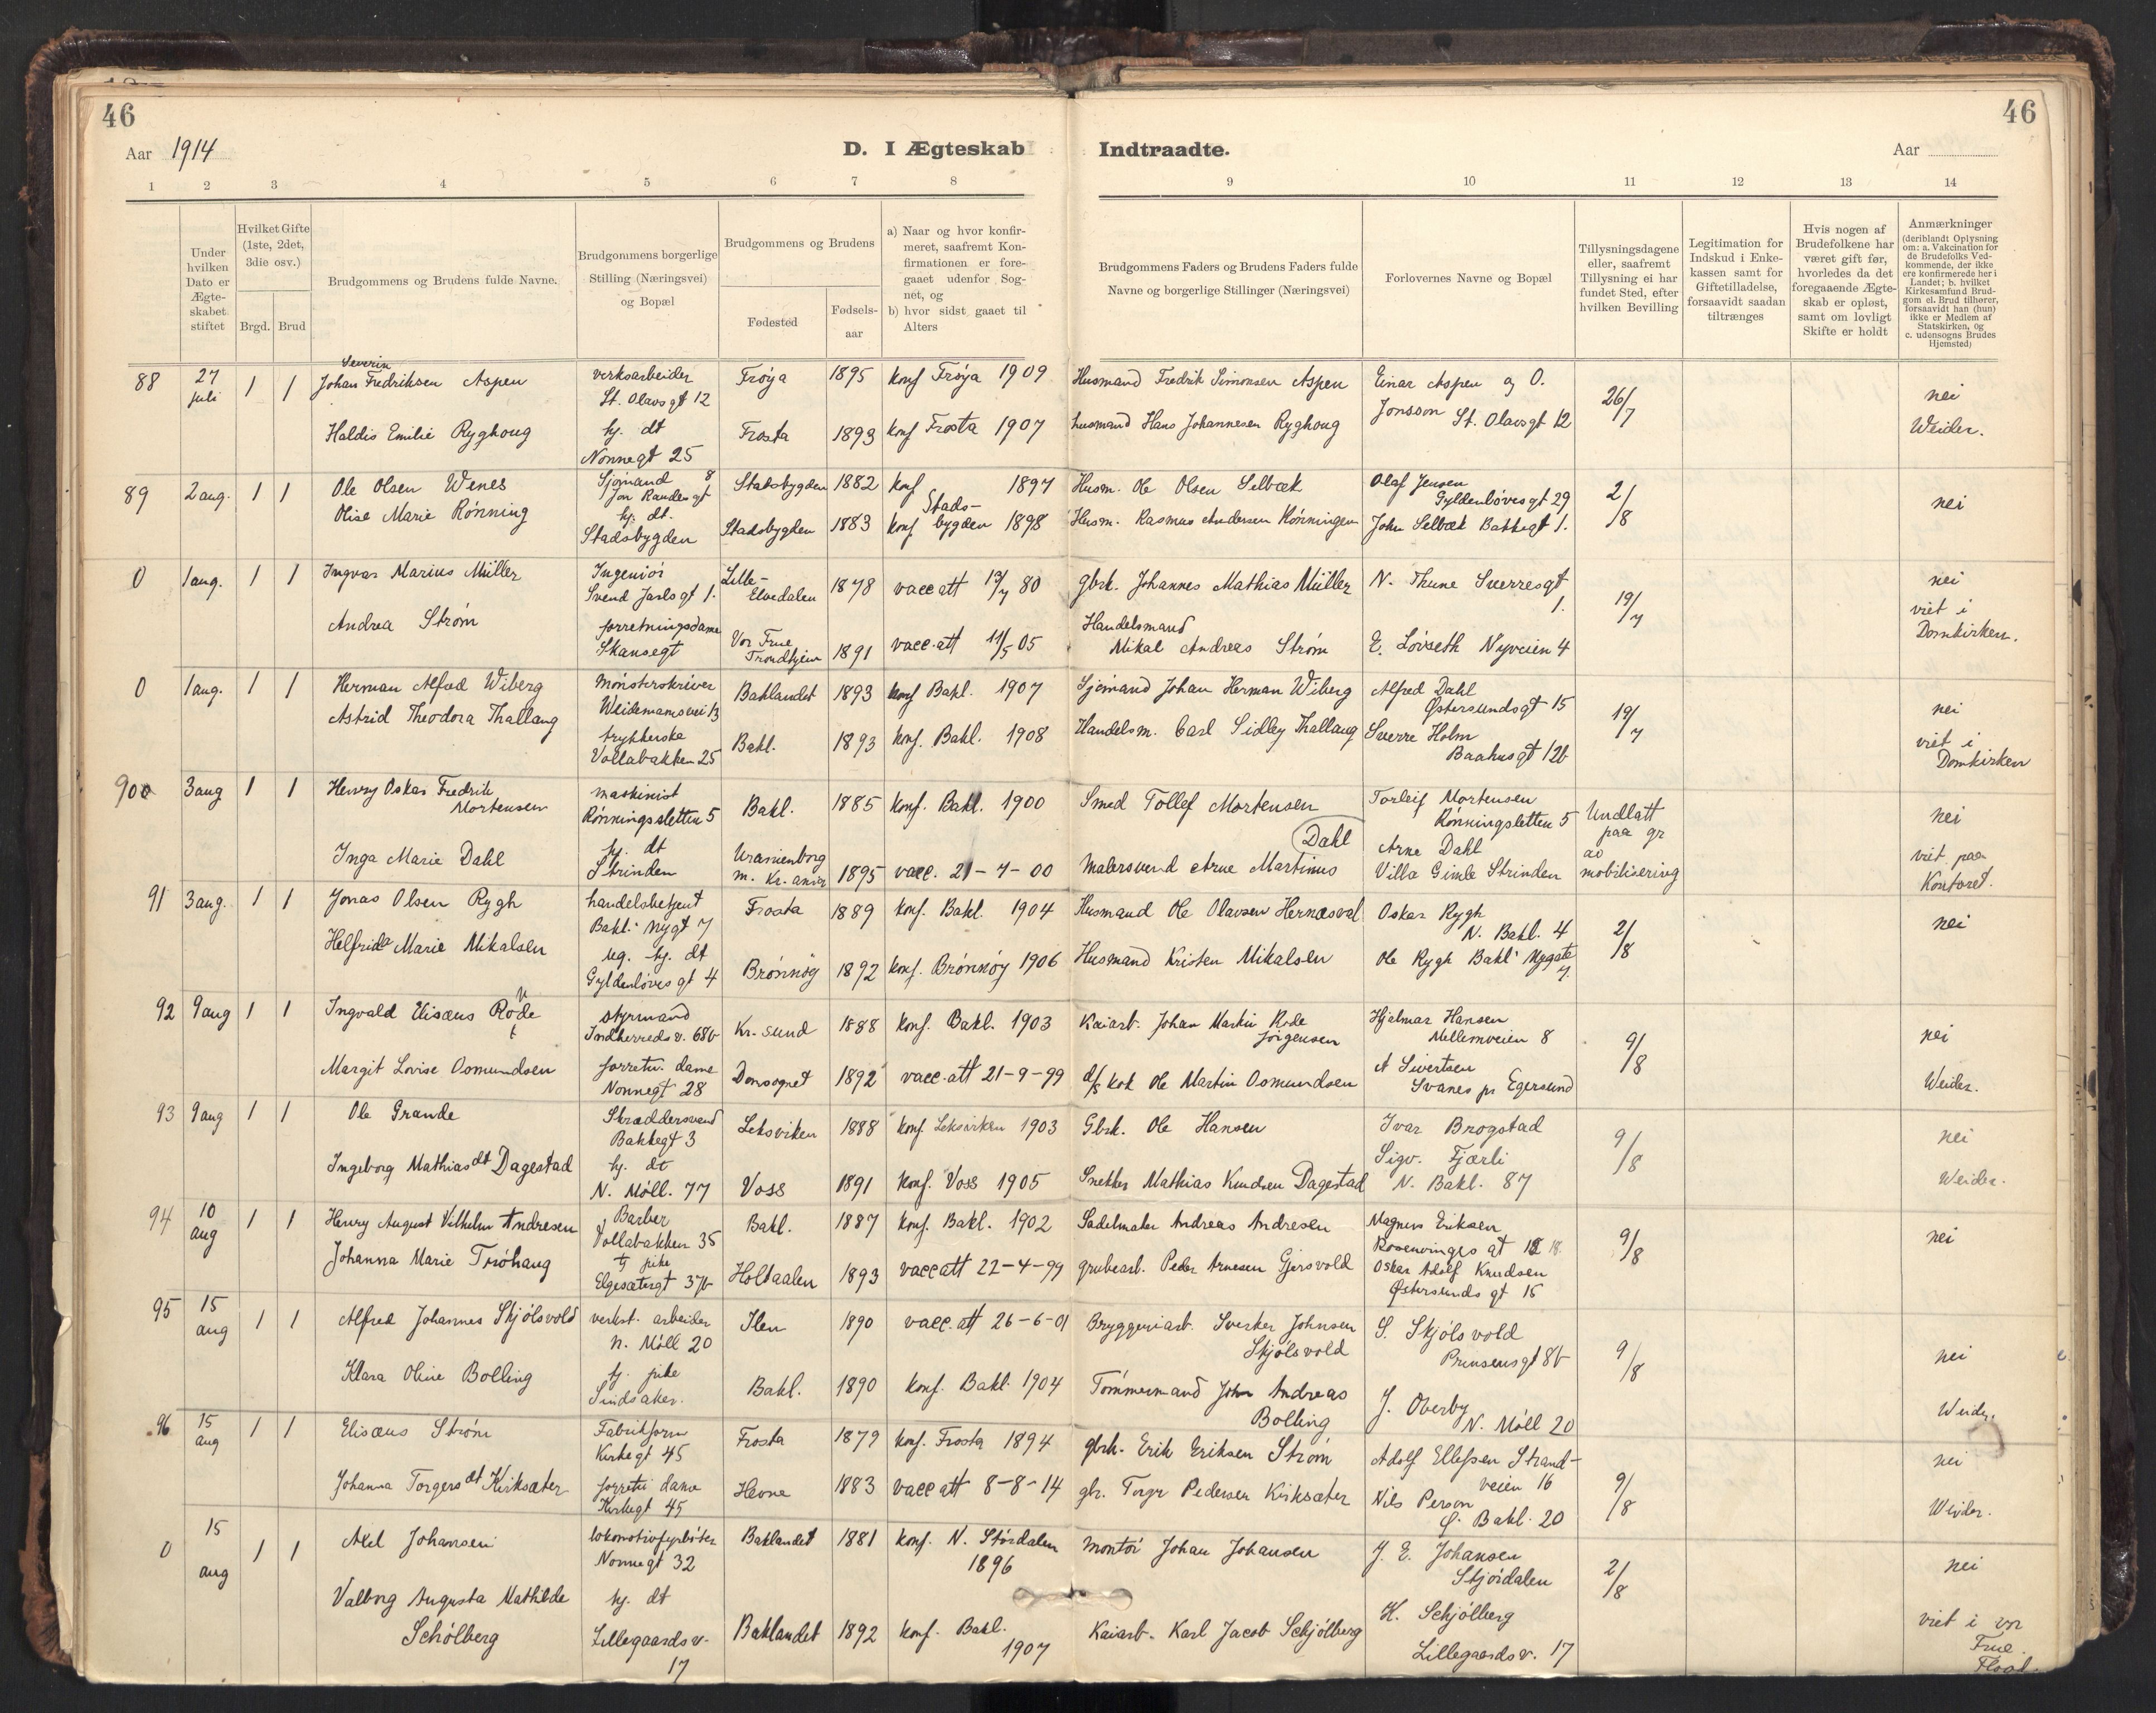 46
46
Aar 1914
D. I Ægteskab Indtraadte.
Aar
1 2 3 4 5 6 7 8 9 10 11 12 13 14
Under hvilken Dato er Ægteskabet stiftet
Hvilket Gifte (1ste, 2det, 3die osv.)
Brgd. Brud
Brudgommens og Brudens fulde Navne.
Brudgommens borgerlige Stilling (Næringsvei) og Bopæl
Brudgommens og Brudens
Fødested
Fødselsaar
a) Naar og hvor konfirmeret, saafremt Konfirmationen er foregaaet udenfor Sognet, og
b) hvor sidst gaaet til Alters
Brudgommens Faders og Brudens Faders fulde Navne og borgerlige Stillinger (Næringsvei)
Forlovernes Navne og Bopæl
Tillysningsdagene eller, saafremt Tillysning ei har fundet Sted, efter hvilken Bevilling
Legitimation for Indskud i Enkekassen samt for Giftetilladelse, forsaavidt saadan tiltrænges
Hvis nogen af Brudefolkene har været gift før, hvorledes da det foregaaende Ægteskab er opløst, samt om lovligt Skifte er holdt
Anmærkninger (deriblandt Oplysning om: a. Vakcination for de Brudefolks Vedkommende, der ikke ere konfirmerede her i Landet; b. hvilket Kirkesamfund Brudgom el. Brud tilhører, forsaavidt han (hun) ikke er Medlem af Statskirken, og c. udensogns Brudes Hjemsted)
88 27 juli 1 1 Johan Severin Fredriksen Aspen verksarbeider St. Olavsgt 12 Frøya 1895 konf Frøya 1909 Husmand Fredrik Simonsen Aspen Einar Aspen og O. Jonsson St. Olavsgt 12 26/7 nei
Haldis Emilie Ryghoug hj. dt Nonnegt 25 Frosta 1893 konf Frosta 1907 husmand Hans Johannesen Ryghoug Weider.
89 2 aug. 1 1 Ole Olsen Wenes Sjømand Jon Raudesgt 8 Stadsbygden 1882 konf Stadsbygden 1897 Husm. Ole Olsen Selbæk Olaf Jensen Gyldenløvesgt 29 2/8 nei
Olise Marie Rønning hj. dt. Stadsbygden Stadsbygden 1883 konf. 1898 Husm. Rasmus Andersen Rønningen John Selbæk Bakkegt 1.
0 1 aug. 1 1 Ingvar Marius Müller Ingeniør Svend Jarlsgt 1. Lille-Elvedalen 1878 vacc att 13/7 80 gbrk. Johannes Mathias Müller N. Thune Sverresgt 1. 19/7 nei
Andrea Strøm forretningsdame Skansegt Vor Frue Trondhjem 1891 vacc. att 11/5 05 Handelsmand Mikal Andreas Strøm E. Løvseth Nyveien 4 viet i Domkirken.
0 1 aug. 1 1 Herman Alfred Wiberg Mønsterskriver Weidemansvei 13 Baklandet 1893 konf Bakl. 1907 Sjømand Johan Herman Wiberg Alfred Dahl Østersundsgt 15 19/7 nei
Astrid Theodora Thallaug trykkerske Vollabakken 25 Bakl. 1893 konf. Bakl. 1908 Handelsm. Carl Sidley Thallaug Sverre Holm Baahusgt 12b viet i Domkirken
90 0 3 aug 1 1 Henry Oskar Fredrik Mortensen maskinist Rønningsletten 5 Bakl. 1885 konf. Bakl. 1900 Smed Tollef Mortensen Torleif Mortensen Rønningsletten 5 Undlatt paa gr av mobilisering nei
Inga Marie Dahl hj. dt Strinden Uranienborg m. Kr.ania 1895 vacc. 21-4-00 Malersvend Arne Martinus Dahl Arne Dahl Villa Gimle Strinden viet paa Kontoret.
91 3 aug. 1 1 Jonas Olsen Rygh handelsbetjent Bakl. Nygt 7 Frosta 1889 konf. Bakl. 1904 Husmand Ole Olavsen Hernæsval Oskar Rygh N. Bakl. 4 2/8 nei
Helfrida Marie Mikalsen ug. hj. dt Gyldenløvesgt 4 Brønnøy 1892 konf. Brønnøy 1906 Husmand Kristen Mikalsen Ole Rygh Bakl. Nygate 7.
92 9 aug 1 1 Ingvald Elisæus Rode styrmand Indherredsv. 68b Kr. sund 1888 konf. Bakl. 1903 Kaiarb. Johan Martin Rode Jørgensen Hjalmar Hansen Mellemveien 8 9/8 nei
Margit Lovise Osmundsen forretn. dame Nonnegt 28 Domsognet 1892 vacc. att 21-9-99 d/s kok Ole Martin Osmundsen A Sivertsen Svanes pr Egersund Weider.
93 9 aug 1 1 Ole Grande Skræddersvend Bakkegt 3 Leksviken 1888 konf Leksviken 1903 Gbrk. Ole Hansen Ivar Brogstad 9/8 nei
Ingeborg Mathiasdt Dagestad hj. dt N. Møll. 77 Voss 1891 konf. Voss 1905 Snekker Mathias Knudsen Dagestad Sigv. Fjærli N. Bakl. 87 Weider.
94 10 aug 1 1 Henry August Vilhelm Andresen Barber Vollabakken 35 Bakl. 1887 konf. Bakl. 1902 Sadelmaker Andreas Andresen Magnus Eriksen Rosenvinges gt 18 9/8 nei
Johanna Marie Trøhaug tj pike Elgesætergt 37b Holtaalen 1893 vacc att 22-4-99 grubearb. Peder Arnesen Gjersvold Oskar Adolf Knudsen Østersunds gt 15
95 15 aug 1 1 Alfred Johannes Skjølsvold verkst. arbeider N. Møll 20 Ilen 1890 vacc. att 26-6-01 Bryggeriarb. Sverker Johnsen Skjølsvold S. Skjølsvold Prinsensgt 8b 9/8 nei
Klara Oline Bolling tj. pike Sindsaker. Bakl. 1890 konf. Bakl. 1904 Tømmermand John Andreas Bolling J. Overby N. Møll 20 Weider.
96 15 aug 1 1 Elisæus Strøm Fabrikform Kirkegt 45 Frosta 1879 konf. Frosta 1894 gbrk. Erik Eriksen Strøm Adolf Ellefsen Strandveien 16 9/8 nei
Johanna Torgersdt Kirksæter forretn dame Kirkegt 45 Hevne 1883 vacc att 8-8-14 gbr. Torgr Pedersen Kirksæter Nils Person Ø. Bakl. 20 Weider.
0 15 aug 1 1 Axel Johansen lokomotivfyrbøter Nonnegt 32 Baklandet 1881 konf. N. Størdalen 1896 Montør Johan Johansen J. E. Johansen Stjørdalen 2/8 nei
Valborg Augusta Mathilde Schølberg hj. dt Lillegaardsv. 17 Baklandet 1892 konf. Bakl. 1907 Kaiarb. Karl Jacob Schjølberg H. Schjølberg Lillegaardsv. 17 viet i vor Frue